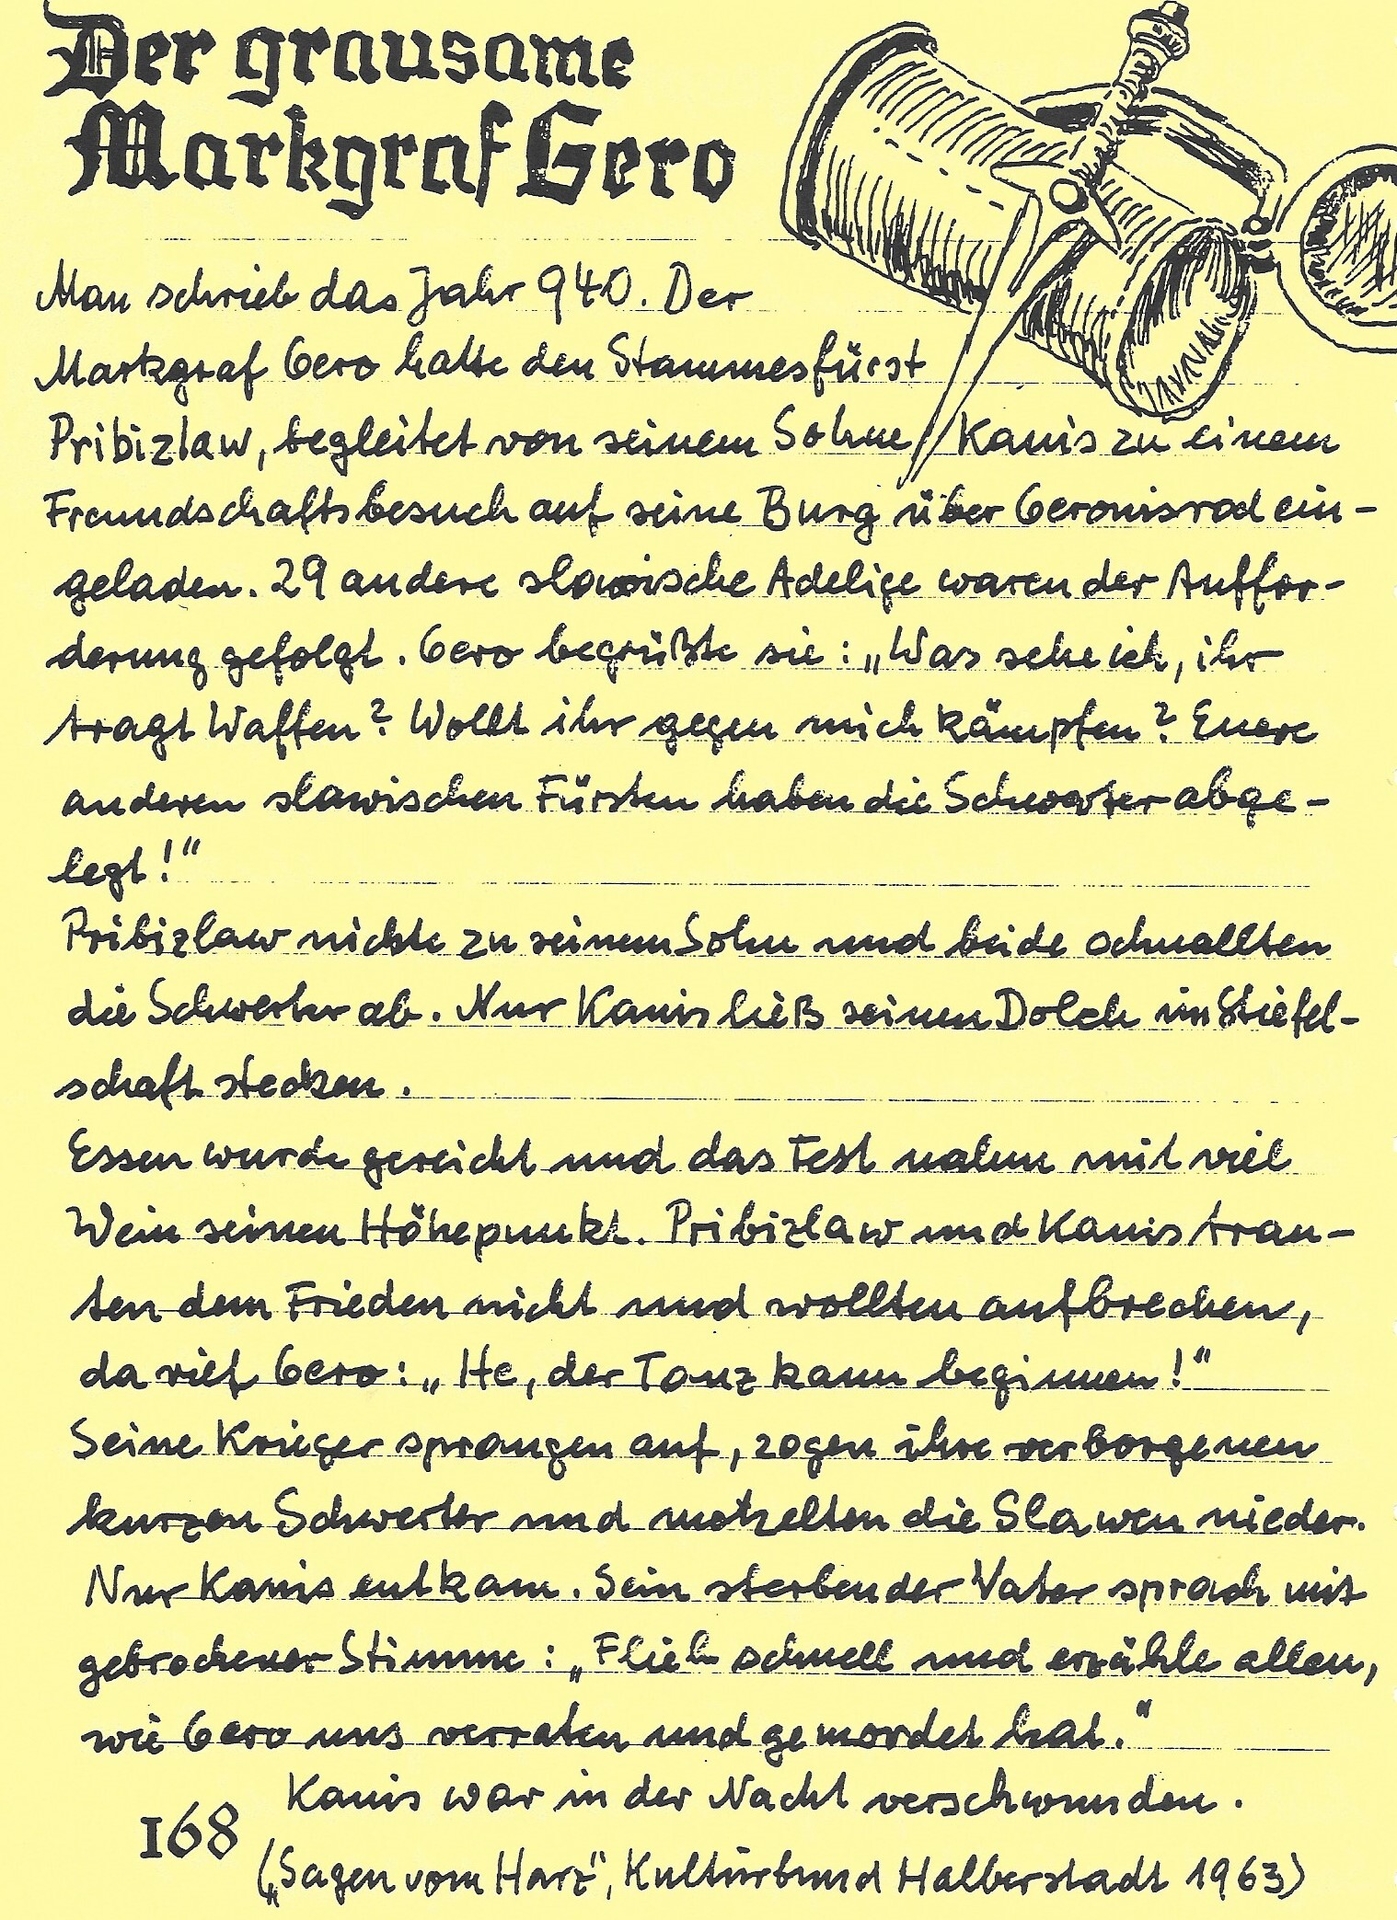 Der grausame
Markgraf Gero
Man schrieb das Jahr 940. Der
Markgraf Gero hatte den Stammesfürst
Pribizlaw, begleitet von seinem Sohne Kanis zu einem
Freundschaftsbesuch auf seine Burg über Geronisrod ein-
geladen. 29 andere slawische Adelige waren der Auffor-
derung gefolgt. Gero begrüßte sie: „Was sehe ich, ihr
tragt Waffen? Wollt ihr gegen mich kämpfen? Euere
anderen slawischen Fürsten haben die Schwerter abge-
legt!“
Pribizlaw nickte zu seinem Sohn und beide schnallten
die Schwerter ab. Nur Kanis ließ seinen Dolch im Stiefel-
schaft stecken.
Essen wurde gereicht und das Fest nahm mit viel
Wein seinen Höhepunkt. Pribizlaw und Kanis trau-
ten dem Frieden nicht und wollten aufbrechen,
da rief Gero: „He, der Tanz kann beginnen!“
Seine Krieger sprangen auf, zogen ihre verborgenen
kurzen Schwerter und metzelten die Slawen nieder.
Nur Kanis entkam. Sein sterbender Vater sprach mit
gebrochener Stimme: „Flieh schnell und erzähle allen,
wie Gero uns verraten und gemordet hat.“
Kanis war in der Nacht verschwunden.
168
(„Sagen vom Harz“, Kulturbund Halberstadt 1963)